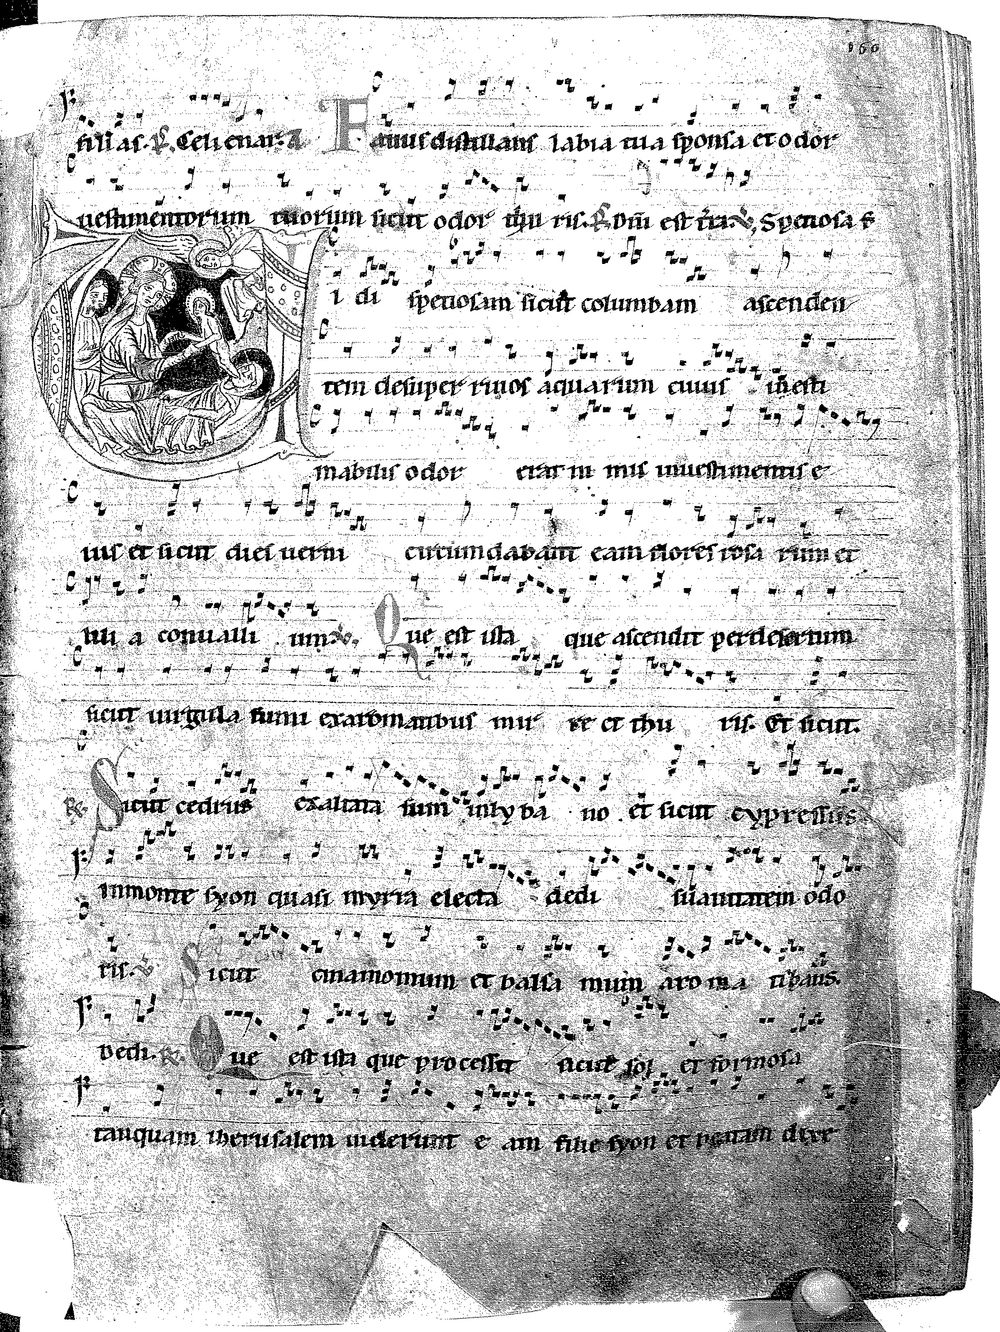 166
filias. R. Celi enar. a Fauus distillans labia tua sponsa et odor
uestimentorum tuorum sicut odor thu ris. R. Dñi est tra. V. Speciosa f
i di speciosam sicut columbam ascenden
tem desuper riuos aquarum cuius inesti
mabilis odor erat in mis inuestimentis e
ius et sicut dies uerni circumdabant eam flores rosa rum et
lili a conualli um. V. Que est ista que ascendit per desertum
sicut uirgula fumi exaromatibus mir re et thu ris. Et sicut.
R. Sicut cedrus exaltata sum inlyba no et sicut cypressus
inmonte syon quasi myrra electa dedi suauitatem odo
ris. V. Sicut cinamomum et balsa mum aro ma tibans.
Dedi. R. Que est ista que processit sicut sol et formosa
tanquam iherusalem uiderunt e am filie syon et beatam dixe